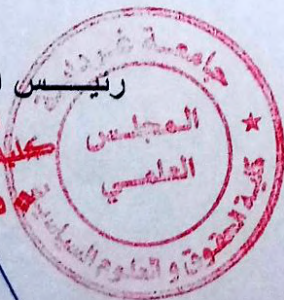 رئيس
كلية
جامعة غرداية
المجلس
العلمي
كلية الحقوق و العلوم السياسية